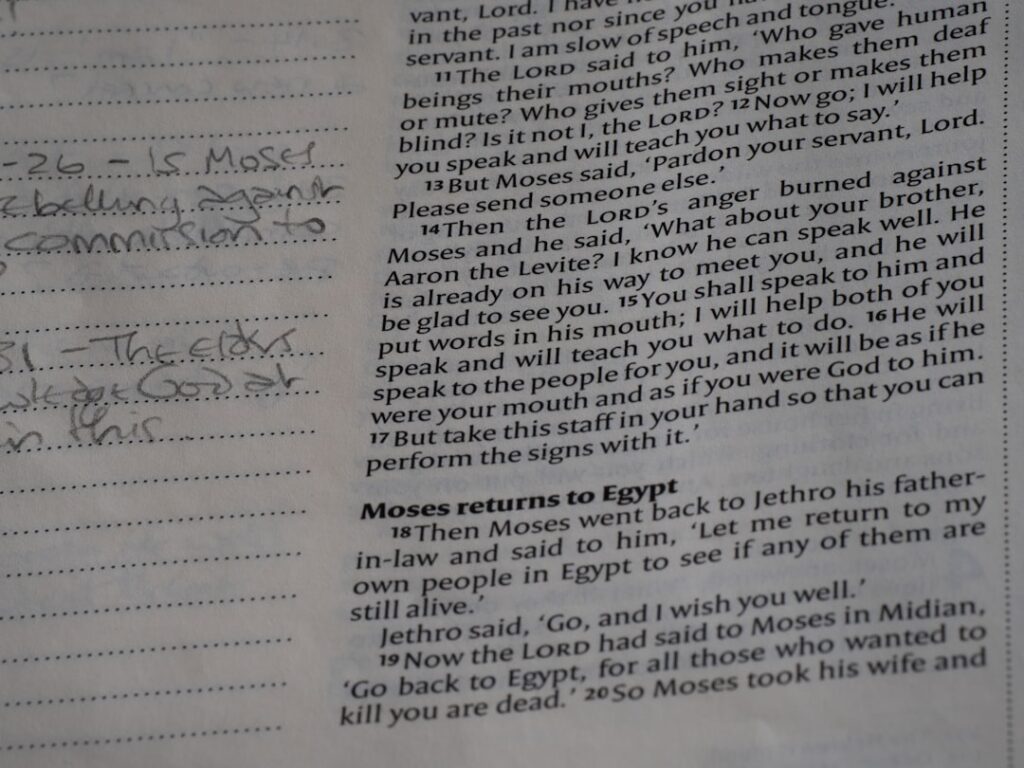 -26 - Is Moses
against
commission to
31 - The elders
God at
in this
vant, Lord. I have
in the past nor since you
servant. I am slow of speech and tongue.
11The LORD said to him, ‘Who gave human
beings their mouths? Who makes them deaf
or mute? Who gives them sight or makes them
blind? Is it not I, the LORD? 12Now go; I will help
you speak and will teach you what to say.’
13But Moses said, ‘Pardon your servant, Lord.
Please send someone else.’
14Then the LORD’s anger burned against
Moses and he said, ‘What about your brother,
Aaron the Levite? I know he can speak well. He
is already on his way to meet you, and he will
be glad to see you. 15You shall speak to him and
put words in his mouth; I will help both of you
speak and will teach you what to do. 16He will
speak to the people for you, and it will be as if he
were your mouth and as if you were God to him.
17But take this staff in your hand so that you can
perform the signs with it.’
Moses returns to Egypt
18Then Moses went back to Jethro his father-
in-law and said to him, ‘Let me return to my
own people in Egypt to see if any of them are
still alive.’
Jethro said, ‘Go, and I wish you well.’
19Now the LORD had said to Moses in Midian,
‘Go back to Egypt, for all those who wanted to
kill you are dead.’ 20So Moses took his wife and